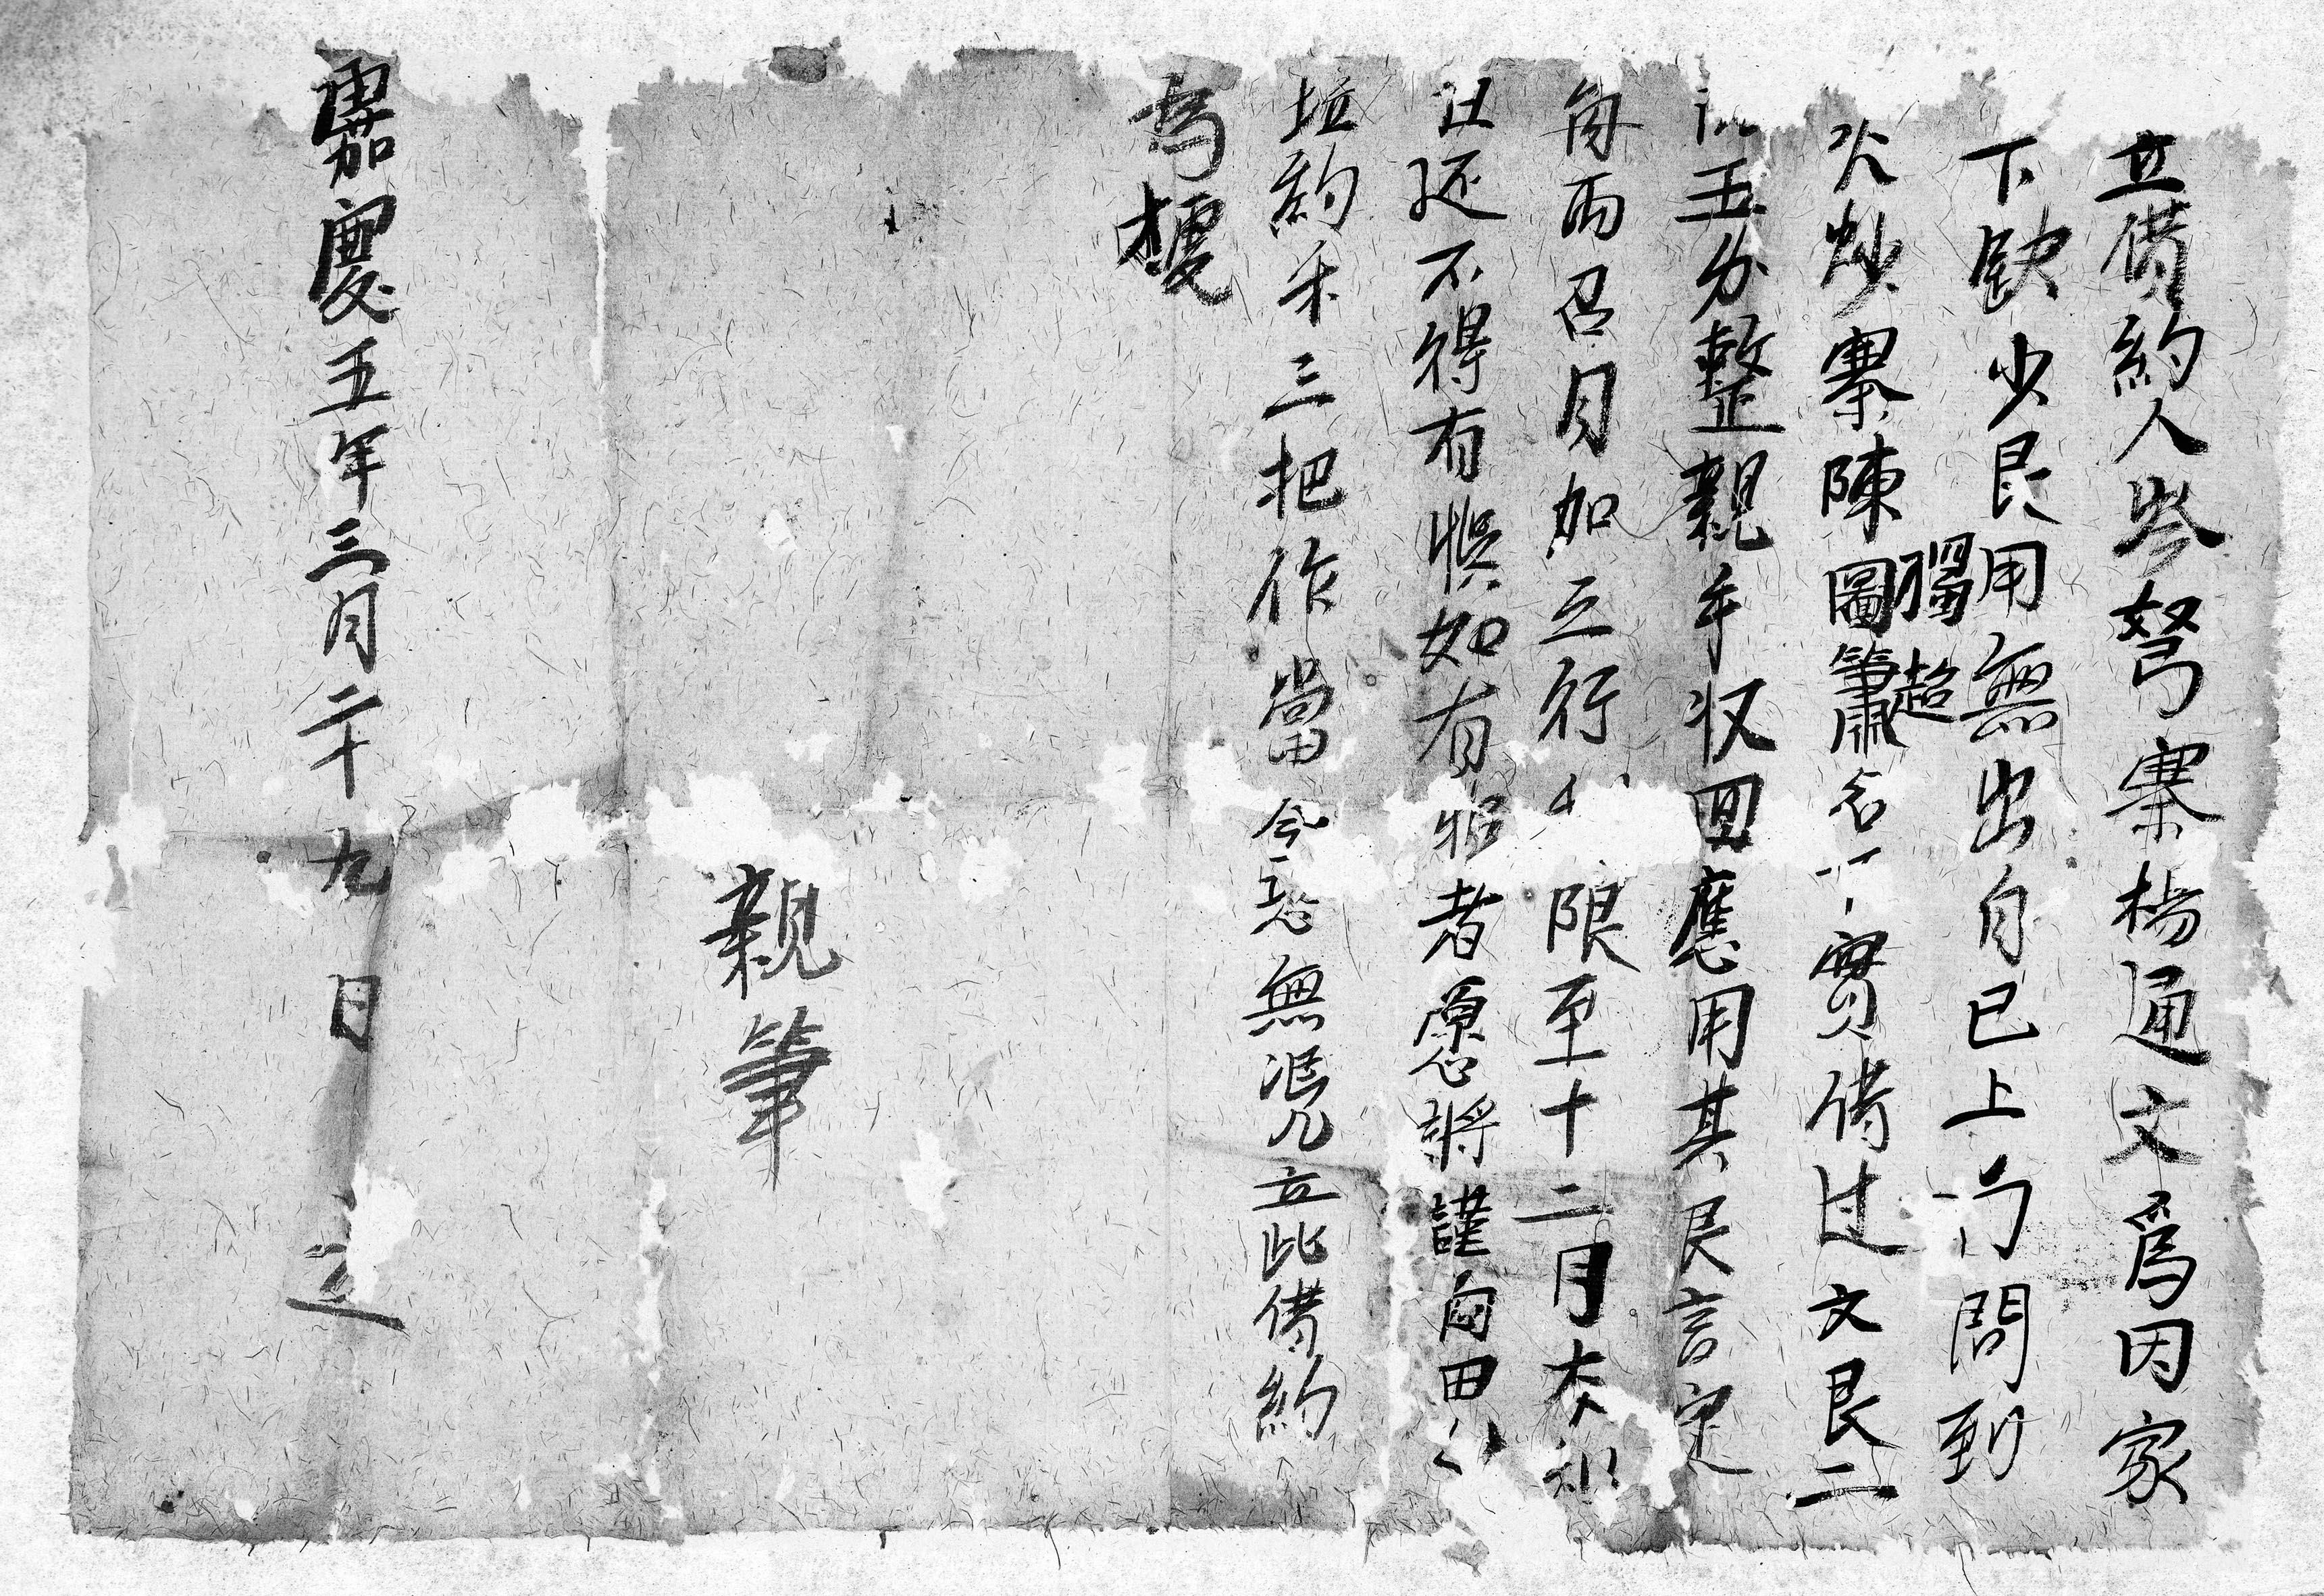 立借約人岑弩寨楊通文爲因家
下缺少艮用無出自己上門問到
火炒寨陳圖簫名下實借过文艮二
獨超
玉分整親手収回應用其艮言定
每両召月加三行 限至十二月本利
还不得有悮如有悮者愿將謹自田
坵約禾三把作當今恐無凴立此借約
爲據
親筆
嘉慶五年三月二十九日 立